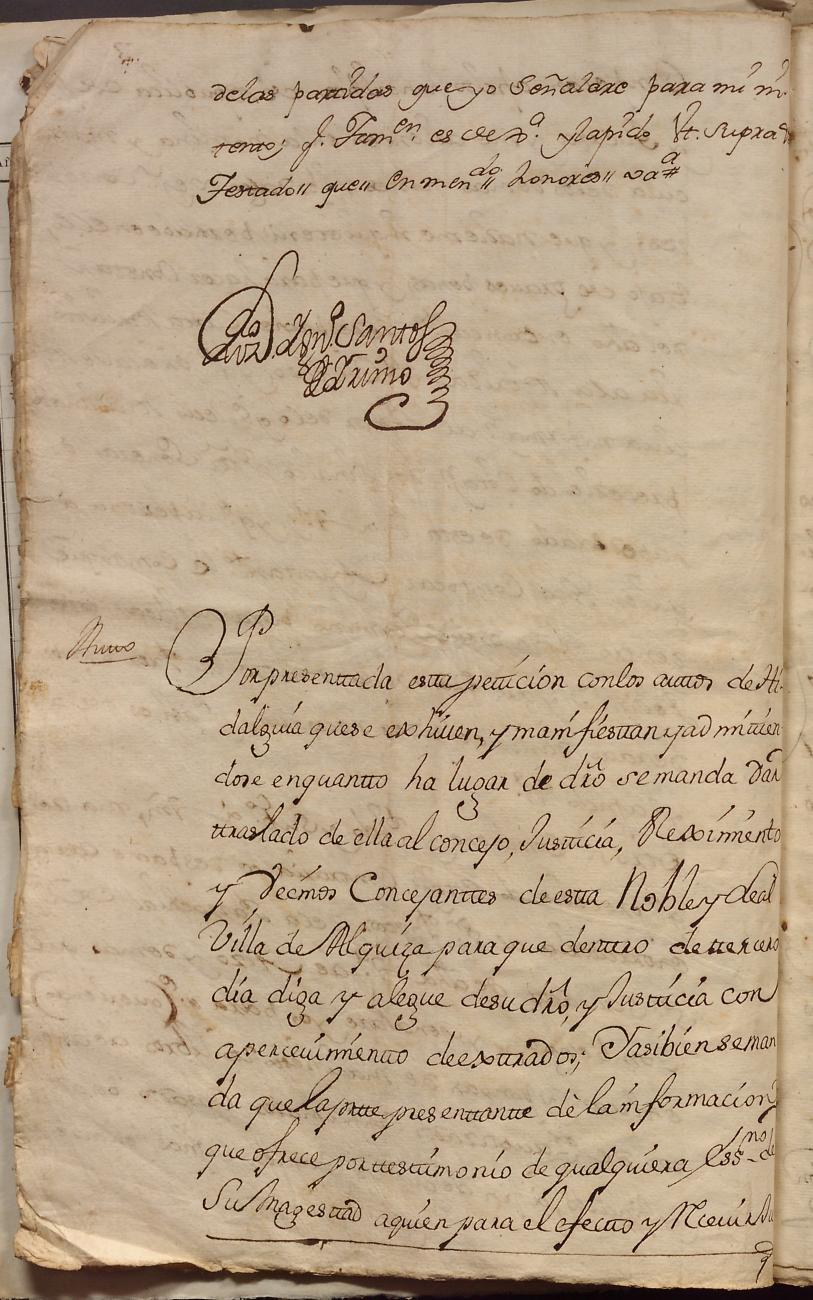 delas partidas que yo Señalare para mi in
tento; J. Tam.en es de
Testado" que" Enmen.do" honores"
Santos
Autto
Por presenttada estta petticion con los auttos de Hi
dalguia que se exhiuen, y manifiesttan y ad mittien
dose en quantto ha lugar de dro se manda Dar
ttraslado de ella al concejo, Justticia, Reximiento
y Vecinos Concejanttes de estta Noble y Leal
Villa de Alquiza para que denttro de ttercero
dia diga y alegue de su dro, y Justticia con
aperceuimientto de exttrados; Y asibien se man
da que la partte presenttantte dè la informacion
que ofrece por ttesttimonio de qualquiera Ess.no de
Su Magesttad a quien para el efectto y Rceuir